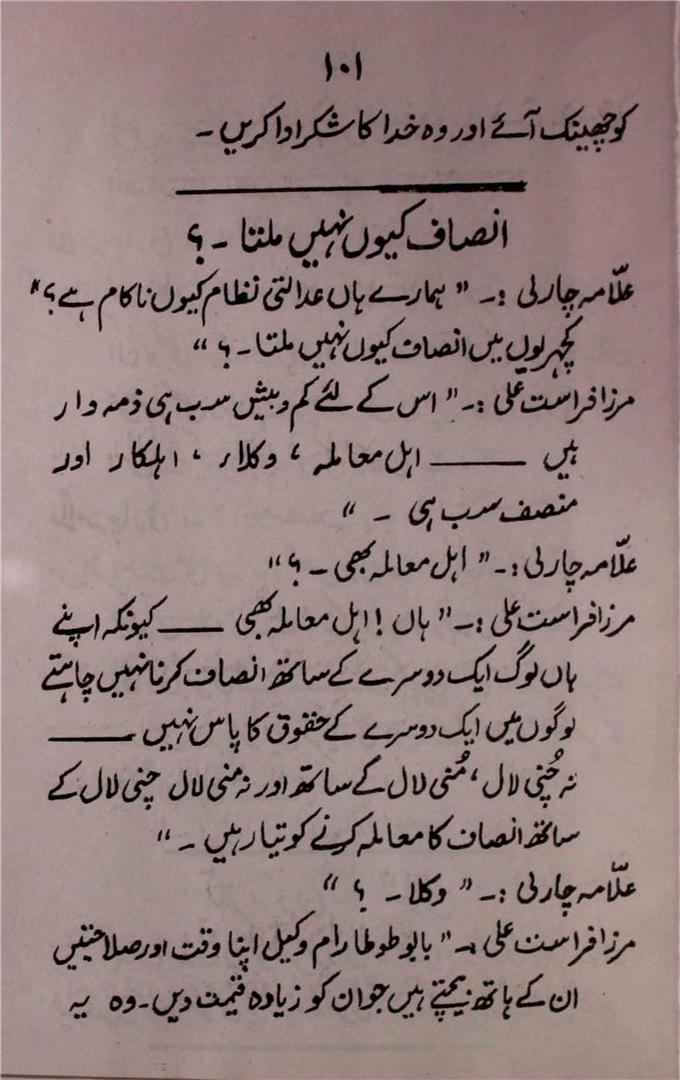 ۱۰۱
کو چھینک آئے اور وہ خدا کا شکر ادا کریں ۔
انصاف کیوں نہیں ملتا ۔ ؟
علّامہ چارلی :۔ " ہمارے ہاں عدالتی نظام کیوں ناکام ہے ؟ "
کچہریوں میں انصاف کیوں نہیں ملتا ۔ ؟ "
مرزا فراست علی :۔ " اس کے لئے کم و بیش سب ہی ذمہ وار
ہیں ــــــ اہل معاملہ ، وکلاء ، اہلکار اور
منصف سب ہی ۔ "
علّامہ چارلی :۔ " اہل معاملہ بھی ۔ ؟ "
مرزا فراست علی :۔ " ہاں ! اہل معاملہ بھی ــــــ کیونکہ اپنے
ہاں لوگ ایک دوسرے کے ساتھ انصاف کرنا نہیں چاہتے
لوگوں میں ایک دوسرے کے حقوق کا پاس نہیں ــــــ
نہ چُنی لال ، مُنی لال کے ساتھ اور نہ منی لال چنی لال کے
ساتھ انصاف کا معاملہ کرنے کو تیار ہیں ۔ "
علّامہ چارلی :۔ " وکلا ۔ ؟ "
مرزا فراست علی :۔ " بابو طوطا رام وکیل اپنا وقت اور صلاحیتیں
ان کے ہاتھ بیچتے ہیں جو ان کو زیادہ قیمت دیں ۔ وہ یہ